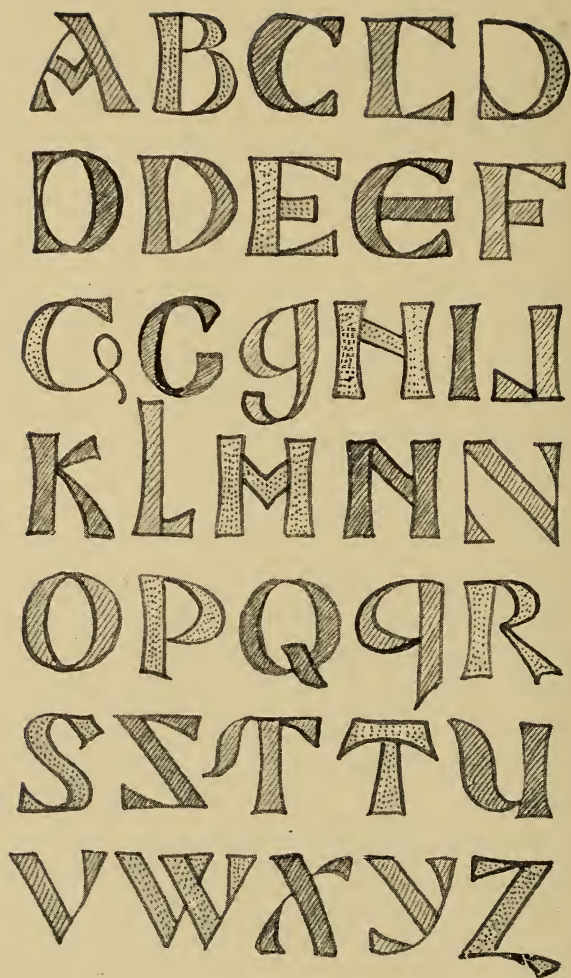 A B C C D
D D E E F
G G g H I J
K L M N N
O P Q q R
S S T T U
V W X Y Z